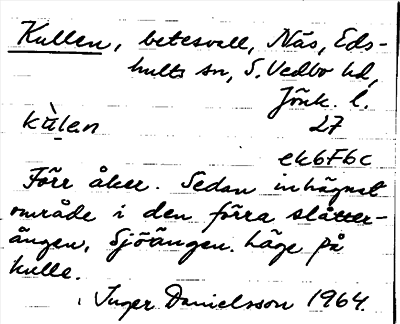 Kullen, betesvall, Näs, Eds-
hults sn, S. Vedbo hd,
Jönk. l.
kù̀len 27
ek6F6c
Förr åker. Sedan inhägnat
område i den förra slåtter-
ängen, Sjöängen. Läge på
kulle.
Inger Danielsson 1964.